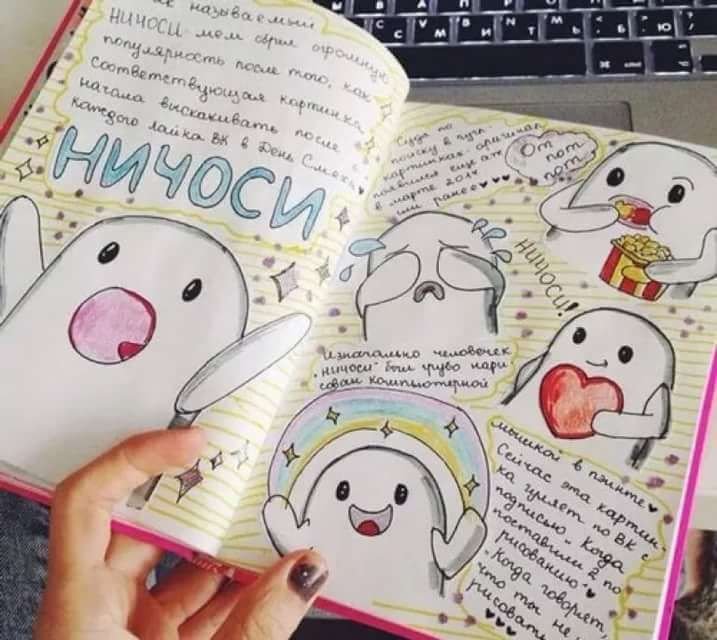 называемый
НИЧОСИ мем обрел огромную
популярность после того, как
соответствующая картинка
начала выскакивать после
каждого лайка ВК в День Смеха
НИЧОСИ
Судя по
поиску в гугл
картинках оригинал
появился еще аж
в марте 201
или ранее
Ом
ном
ном
НИЧОСИ!
Изначально человечек
"ничоси" был грубо нари
сован компьютерной
мышкой в пэинте
Сейчас эта картин-
ка гуляет по ВК с
подписью "Когда
поставили 2 по
рисованию",
"Когда говорят
что ты не
рисовать